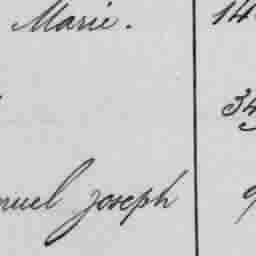 Marie. 14
34
nuel Joseph 9